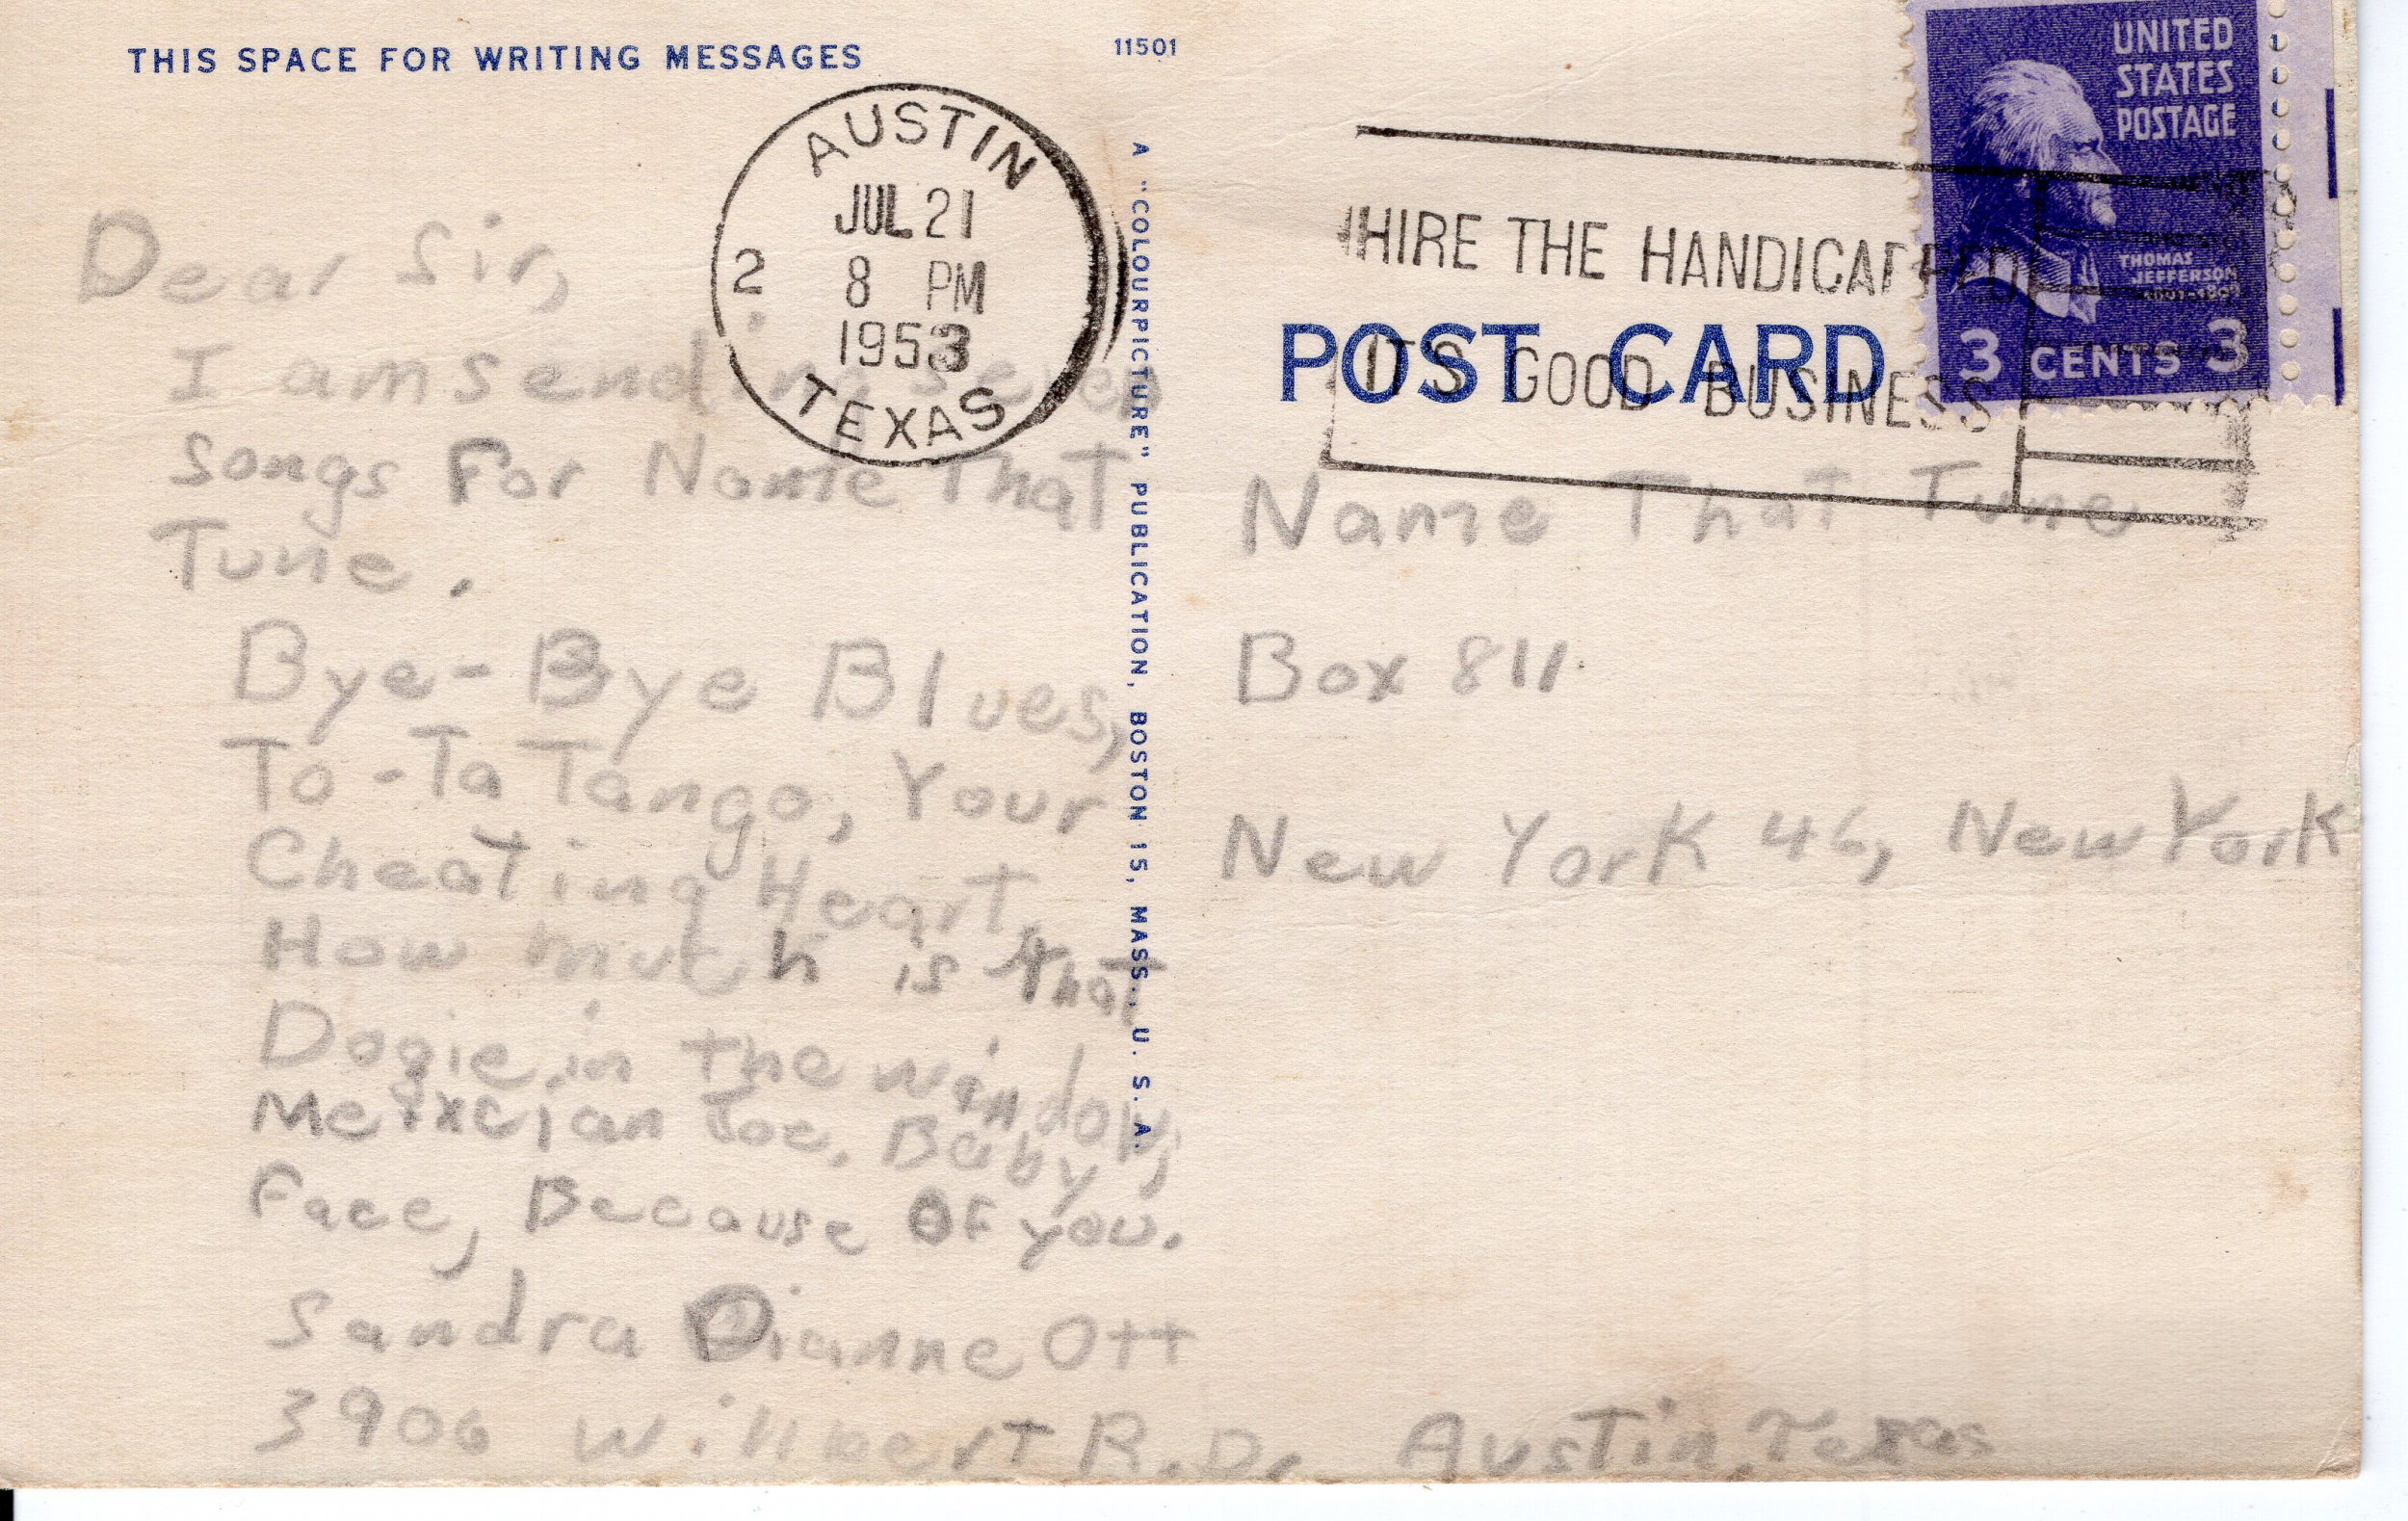 THIS SPACE FOR WRITING MESSAGES
11501
AUSTIN
JUL 21
2 8 PM
1953
TEXAS
UNITED
STATES
POSTAGE
THOMAS
JEFFERSON
3 CENTS 3
HIRE THE HANDICAPPED
IT'S GOOD BUSINESS
POST CARD
A "COLOURPICTURE" PUBLICATION, BOSTON 15, MASS., U. S. A.
Dear Sir,
I am sending seven
songs For Name That
Tune.
Bye-Bye Blues,
To-Ta Tango, Your
Cheating Heart,
How mutch is that
Dogie in the window,
Joe, Baby
Face, Because OF you.
Sandra Dianne Ott
3906 Willbert R.D. Austin, Texas
Name That Tune
Box 811
New York 46, New York